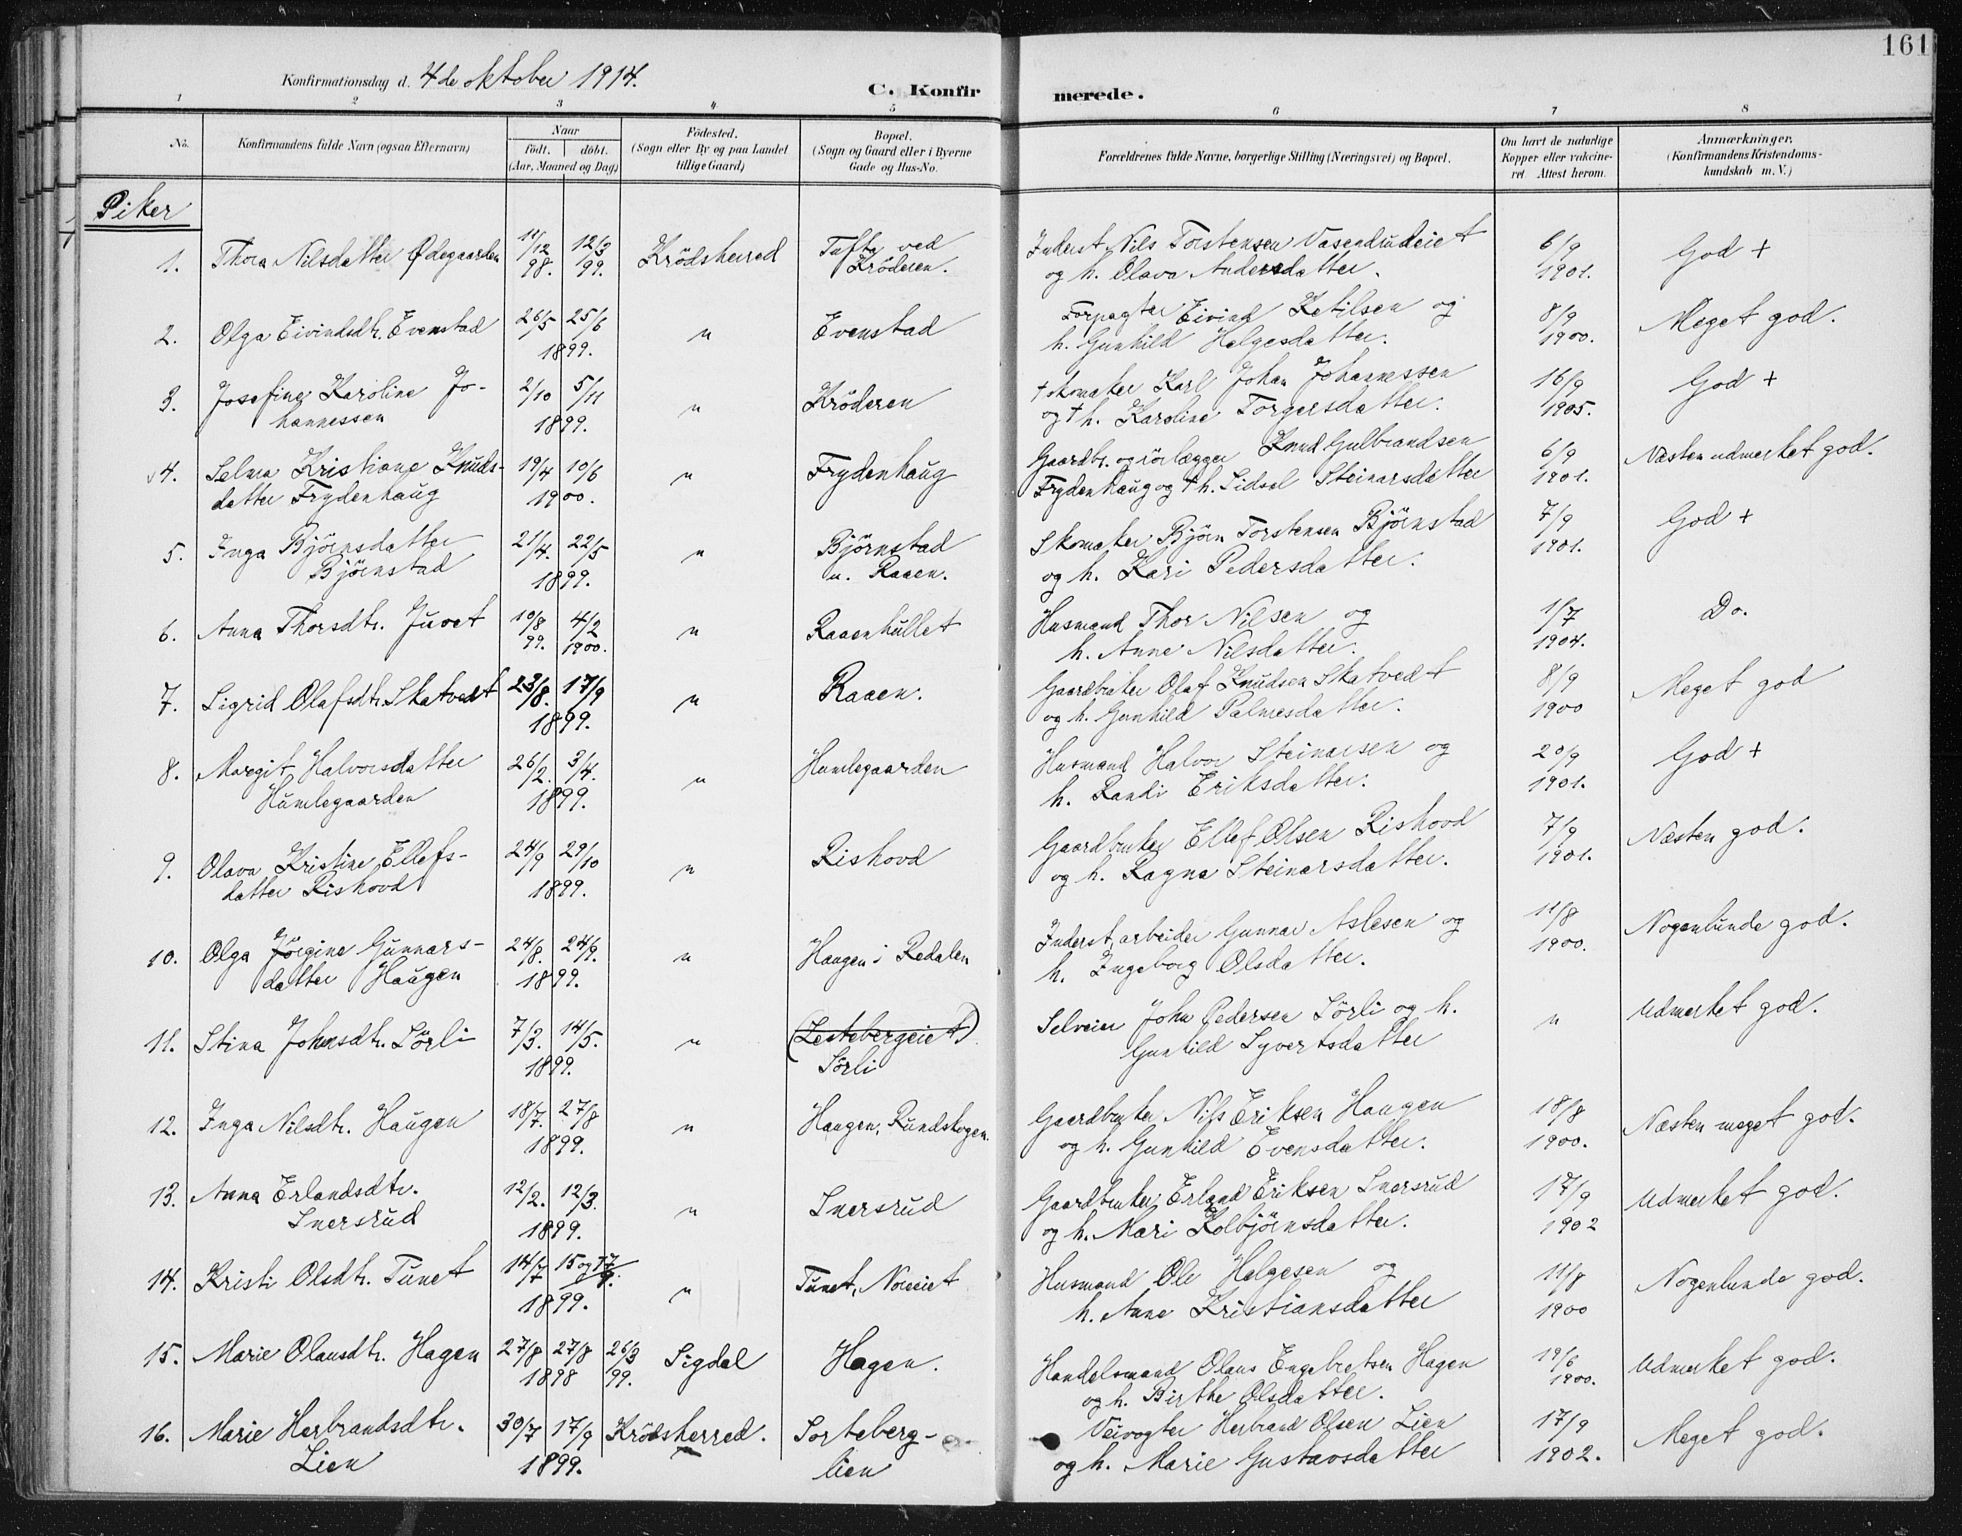 161
Konfirmationsdag d. 4de oktober 1914.
C. Konfirmerede.
1 2 3 4 5 6 7 8
No.
Konfirmandens fulde Navn (ogsaa Efternavn)
Naar
födt. döbt.
(Aar, Maaned og Dag)
Födested.
(Sogn eller By og paa Landet
tillige Gaard)
Bopæl.
(Sogn og Gaard eller i Byerne
Gade og Hus-No.
Forældrenes fulde Navne, borgerlige Stilling (Næringsvei) og Bopæl.
Om havt de naturlige
Kopper eller vakcine-
ret Attest herom.
Anmærkninger.
(Konfirmandens Kristendoms-
kundskab m. V.)
Piker
1. Thora Nilsdatter Ødegaarden 11/12 98. 12/3 99. Krödsherred Tufte ved Kröderen. Inderst Nils Torstensen Vasendrudeiet 6/9 God +
og h. Olava Andersdatter. 1901.
2. Olga Eivindsdtr. Evenstad 26/5 25/6 " Evenstad Forpagter Eivind Ketilsen og 8/9 Meget god.
1899. h. Gunhild Helgesdatter. 1900.
3. Josefine Karoline Jo- 2/10 5/11 " Kröderen † skomaker Karl Johan Johannessen 16/9 God +
hannessen 1899. og † h. Karoline Torgersdatter. 1905.
4. Selma Kristiane Knuds- 19/4 10/6 " Frydenhaug Gaardbr. og rörlægger Knud Gulbrandsen 6/9 Næsten udmerket god.
datter Frydenhaug 1900. Frydenhaug og † h. Sidsel Steinarsdatter 1901.
5. Inga Björnsdatter 21/4. 22/5 " Björnstad Skomaker Björn Torstensen Björnstad 7/9 God +
Björnstad 1899. u. Raaen. og h. Kari Pedersdatter. 1901.
6. Anna Thorsdtr. Juvet 10/8 99. 4/2 1900. " Raaenhullet Husmand Thor Nilsen og 1/7 Do.
h. Anne Nilsdatter. 1904.
7. Sigrid Olafsdtr. Skatvedt 23/8. 17/9 " Raaen. Gaardbruker Olaf Knudsen Skatvedt 8/9 Meget god
1899. og h. Gunhild Palmesdatter. 1900
8. Margit Halvorsdatter 26/2. 3/4. " Humlegaarden Husmand Halvor Steinarsen og 20/9 God +
Humlegaarden 1899. h. Randi Eriksdatter. 1901.
9. Olava Kristine Ellefs- 24/9 29/10 " Rishovd Gaardbruker Ellef Olsen Rishovd 7/9 Næsten god.
datter Rishovd 1899. og h. Ragna Steinarsdatter. 1901.
10. Olga Jörgine Gunnars- 24/8. 24/9. " Haugen i Redalen Inderst, arbeider Gunnar Aslesen og 11/8 Nogenlunde god.
datter Haugen 1899. h. Ingeborg Olsdatter. 1900.
11. Stina Johnsdtr. Sörli 7/3. 14/5. " (Lestebergeiet) Selveier John Pedersen Sörli og h. " Udmerket god.
1899. Sörli Gunhild Syvertsdatter
12. Inga Nilsdtr. Haugen 18/7. 27/8 " Haugen, Rundskogen. Gaardbruker Nils Eriksen Haugen 18/8 Næsten meget god.
1899. og h. Gunhild Evensdatter. 1900.
13. Anna Erlandsdtr. 12/2. 12/3. " Snersrud Gaardbruker Erland Eriksen Snersrud 17/9 Udmerket god.
Snersrud 1899. og h. Mari Kolbjörnsdatter. 1902
14. Kristi Olsdtr. Tunet 14/7 15 og 17/9. " Tunet, Noreeiet Husmand Ole Helgesen og 11/8 Nogenlunde god.
1899. h. Anne Kristiansdatter 1900
15. Marie Olausdtr. Hagen 27/8 27/8 26/3 Sigdal Hagen. Handelsmand Olaus Engebretsen Hagen 19/6 Udmerket god.
1898 99. og h. Birthe Olsdatter. 1900.
16. Marie Herbrandsdtr. 30/7 17/9 Krödsherred. Sorteberg- Veivogter Herbrand Olsen Lien 17/9 Meget god.
Lien 1899. lien og h. Marie Gustavsdatter 1902.